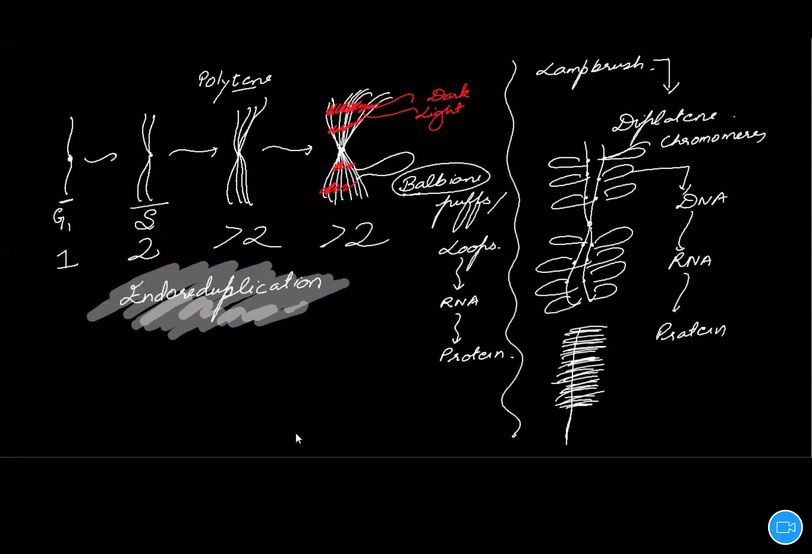 Polytene
Dark
Light
G1
S
1
2
>2
>2
Endoreduplication
Balbiani
puffs/
Loops.
RNA
Protein.
Lampbrush.
Diplotene.
chromomeres
DNA
RNA
Protein